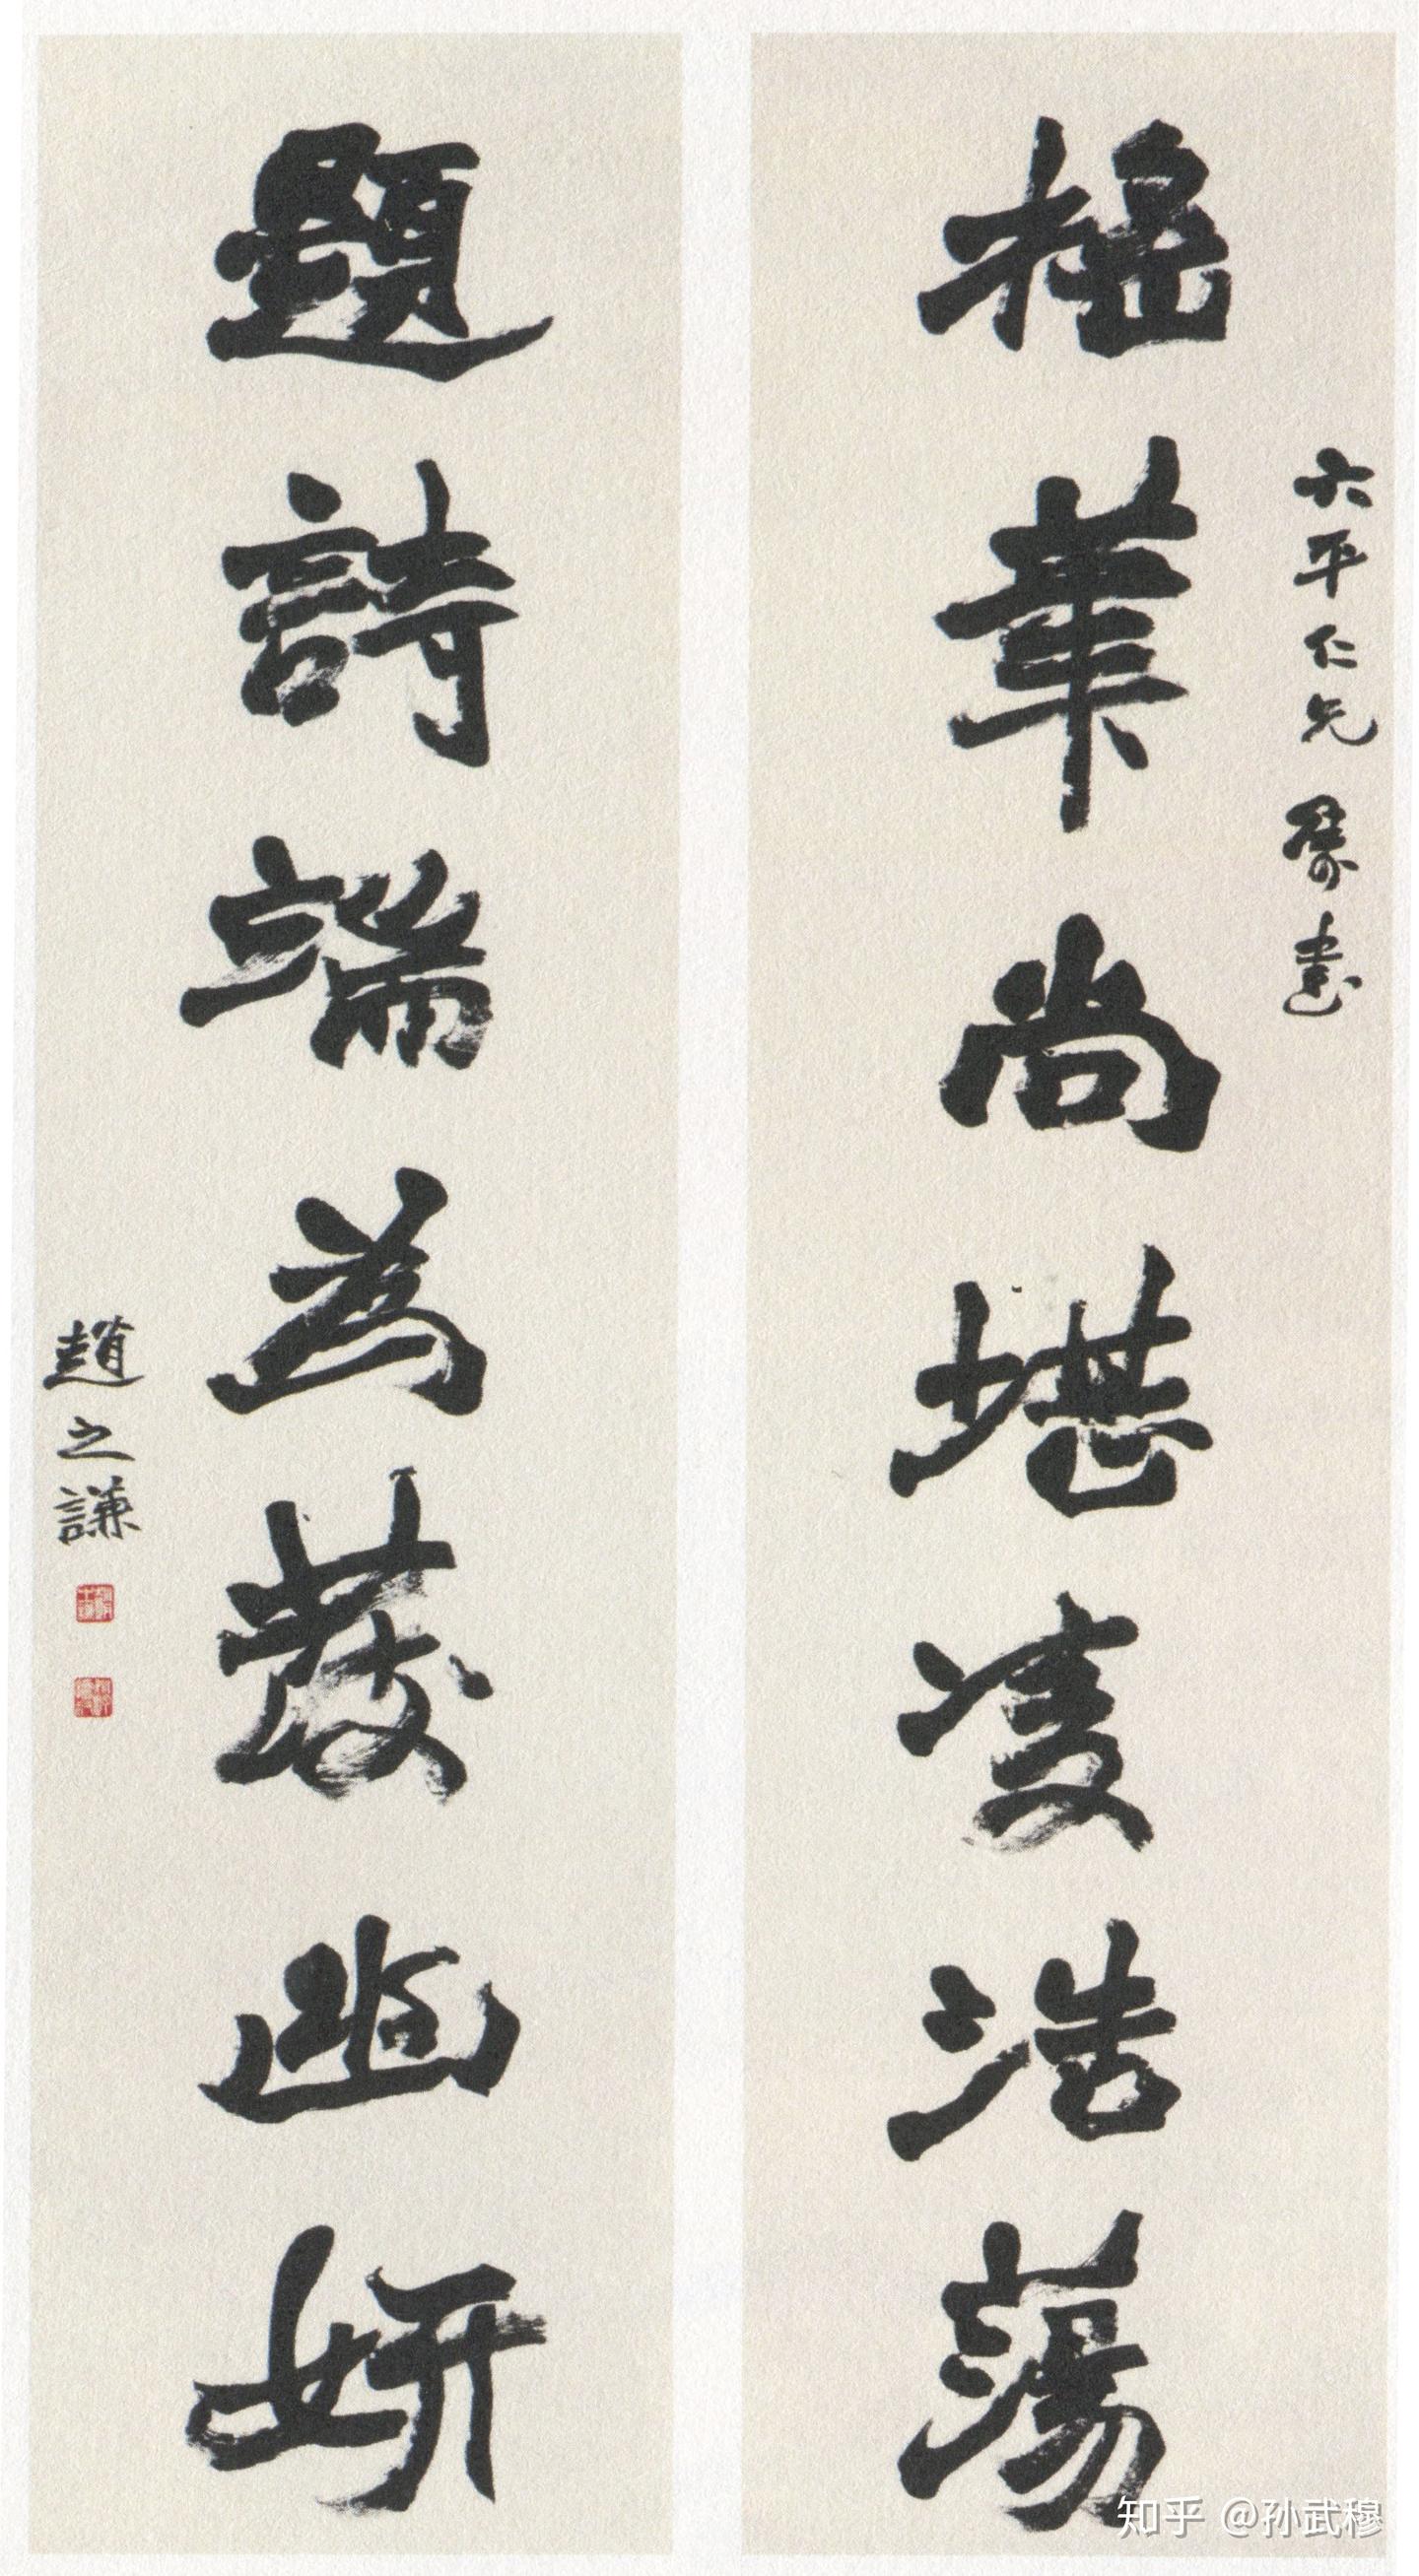 六平仁兄屬書
搖筆尚堪凌浩蕩
題詩端為發幽妍
趙之謙
知乎 @孙武穆